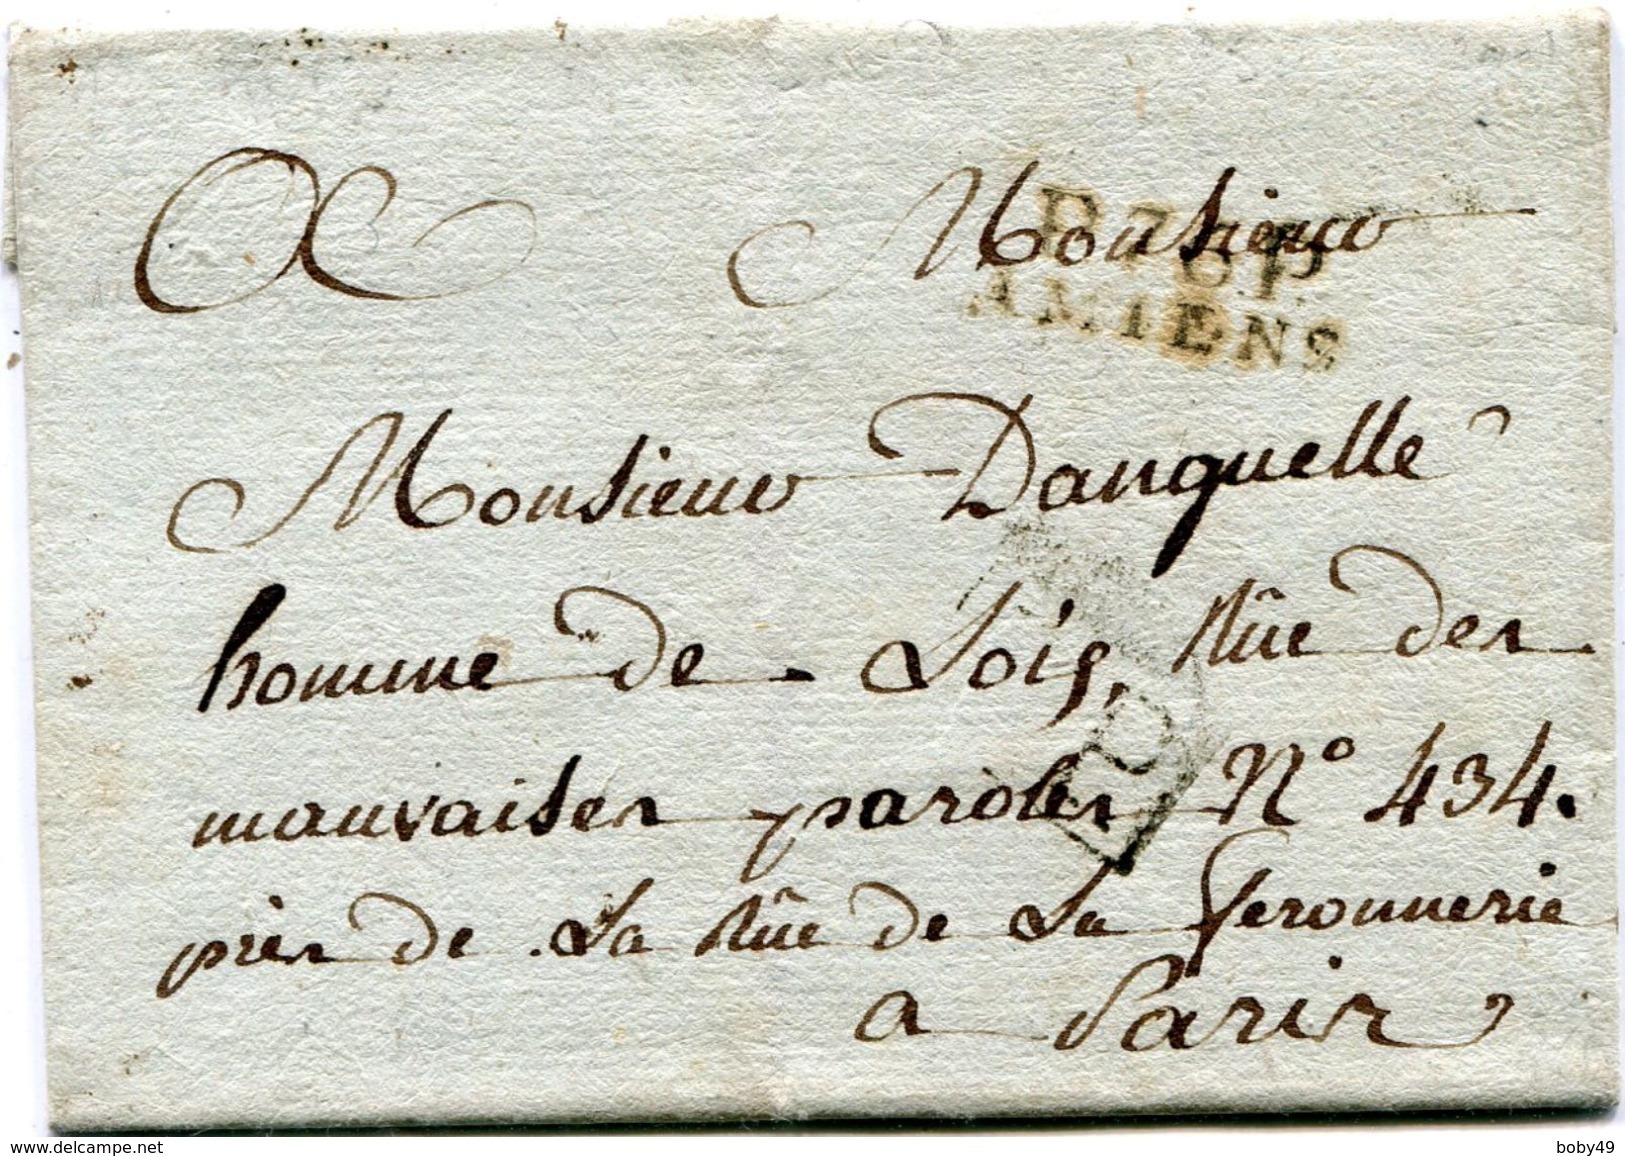 Monsieur
P.P.
AMIENS
Monsieur Danquelle
homme de Lois, Rûe des
mauvaises paroles N° 434.
près de La Rûe de La feronnerie
a Paris
boby49